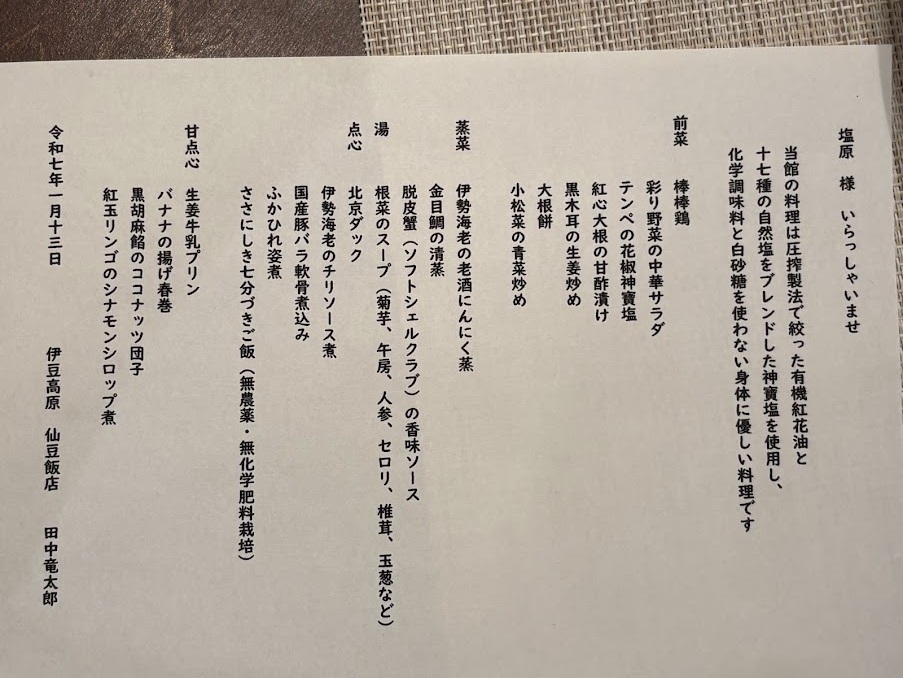 塩原 様 いらっしゃいませ
当館の料理は圧搾製法で絞った有機紅花油と
十七種の自然塩をブレンドした神寶塩を使用し、
化学調味料と白砂糖を使わない身体に優しい料理です
前菜 棒棒鶏
彩り野菜の中華サラダ
テンペの花椒神寶塩
紅心大根の甘酢漬け
黒木耳の生姜炒め
大根餅
小松菜の青菜炒め
蒸菜 伊勢海老の老酒にんにく蒸
金目鯛の清蒸
脱皮蟹（ソフトシェルクラブ）の香味ソース
湯 根菜のスープ（菊芋、午房、人参、セロリ、椎茸、玉葱など）
点心 北京ダック
伊勢海老のチリソース煮
国産豚バラ軟骨煮込み
ふかひれ姿煮
ささにしき七分づきご飯（無農薬・無化学肥料栽培）
甘点心 生姜牛乳プリン
バナナの揚げ春巻
黒胡麻餡のココナッツ団子
紅玉リンゴのシナモンシロップ煮
令和七年一月十三日 伊豆高原 仙豆飯店 田中竜太郎